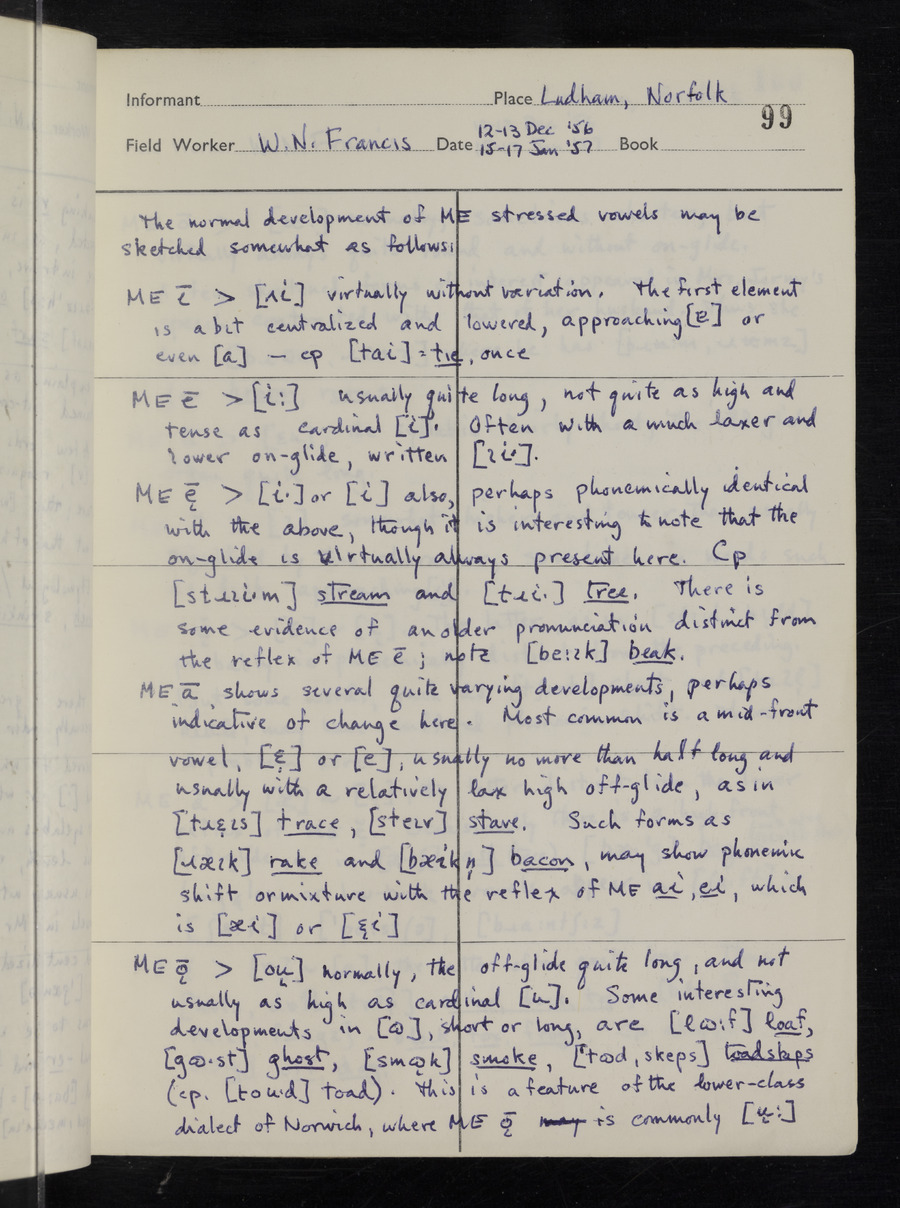 Informant Place Ludham, Norfolk
99
Field Worker W.N. Francis Date 12-13 Dec '56 15-17 Jan '57 Book
The normal development of ME stressed vowels may be
sketched somewhat as follows:
ME ī > [ɹi] virtually without variation. The first element
is a bit centralized and lowered, approaching [ɐ] or
even [a] – cp [tai] = tie, once
ME ē > [i:] usually quite long, not quite as high and
tense as cardinal [i]. Often with a much laxer and
lower on-glide, written [ɪi·].
ME ę̄ > [i·] or [i] also, perhaps phonemically identical
with the above, though it is interesting to note that the
on-glide is virtually always present here. Cp
[stɹɪi·m] stream and [tɹi·] tree. There is
some evidence of an older pronunciation distinct from
the reflex of ME ē; note [be:ɪk] beak.
ME ā shows several quite varying developments, perhaps
indicative of change here. Most common is a mid-front
vowel, [ę] or [e], usually no more than half long and
usually with a relatively lax high off-glide, as in
[tɹęɪs] trace, [steɪv] stave. Such forms as
[ɹæɪk] rake and [bæikn̩] bacon, may show phonemic
shift or mixture with the reflex of ME ai, ei, which
is [æi] or [ęi]
ME ǭ > [ou̜] normally, the off-glide quite long, and not
usually as high as cardinal [u]. Some interesting
developments in [ɷ], short or long, are [lɷ:f] loaf,
[gɷ·st] ghost, [smɷk] smoke, [tɷd,skeps] toadskeps
(cp. [to·u·d] toad). This is a feature of the lower-class
dialect of Norwich, where ME ǭ may is commonly [u̜:]